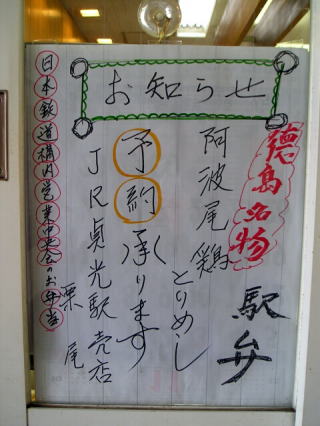 お知らせ
徳島名物
駅弁
阿波尾鶏
とりめし
予約承ります
JR貞光駅売店
栗尾
日本鉄道構内営業中央会のお弁当